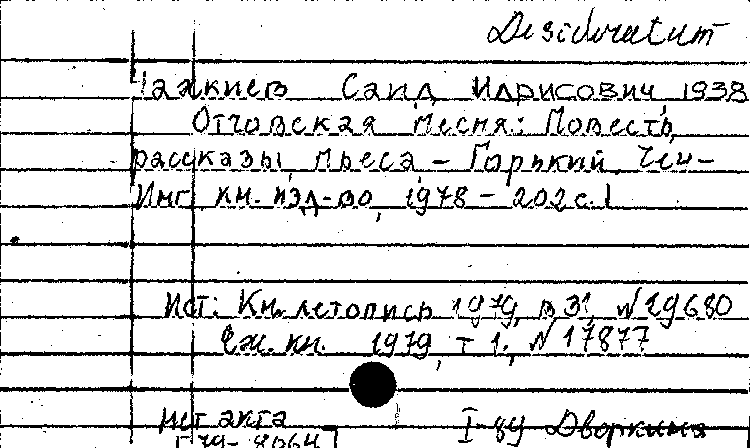 Desideratum
Чахкиев Саид Идрисович, 1938
Отчовская песня: Повесть,
рассказы, пьеса. – Горький, Чеч-
Инг. кн. изд-во, 1978 – 202 с.
Ист: Кн. летопись 1979, в 31, № 29680
Еж. кн. 1979, т 1., № 17877
Ист акта
Г 79-8064
I-89 Дворкина